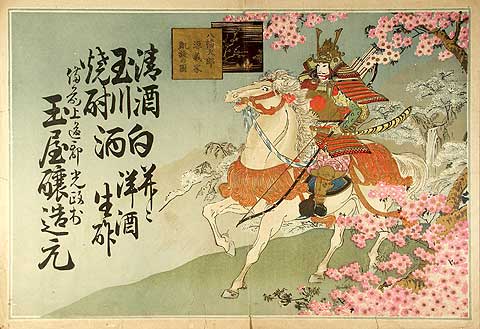 八幡太郎
源義家
清酒白并ニ
玉川洒洋酒
焼酎生酢
備前上道郡光政村
玉屋醸造元